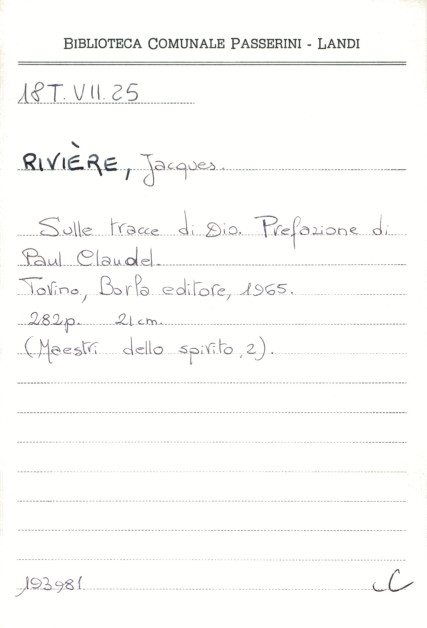 BIBLIOTECA COMUNALE PASSERINI - LANDI
18T.VII.25
RIVIÈRE, Jacques.
Sulle tracce di Dio. Prefazione di
Paul Claudel.
Torino, Borla editore, 1965.
282p. 21cm.
(Maestri dello spirito, 2).
193981 C